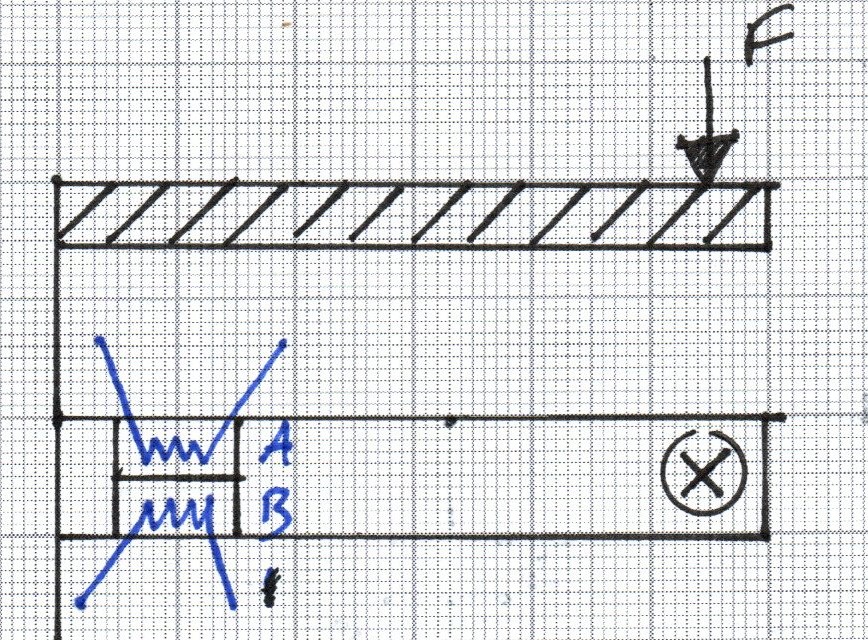 F
A
B